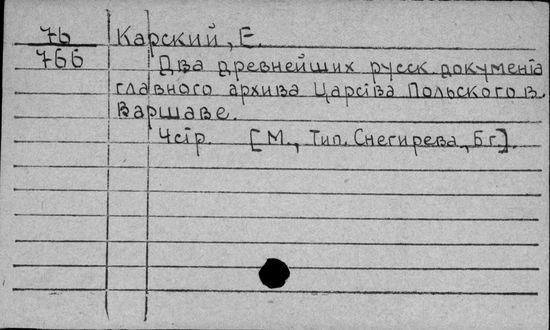 76 Карский, Е.
766 Два древнейших русск. документа
главного архива Царства Польского в
Варшаве.
4стр. [М., Тип. Снегирева, Б.г.].